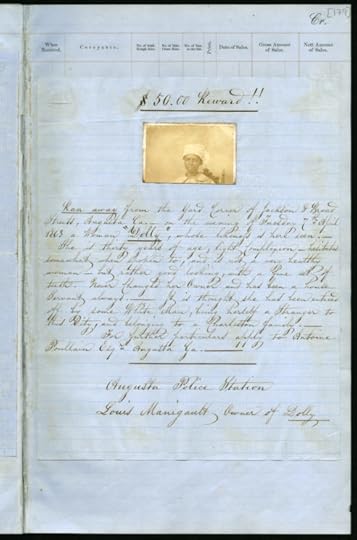 [179]
Cr.
When Received.
Consignee.
No. of
No. of
No. of
Price.
Date of Sales.
Gross Amount of Sales.
Nett Amount of Sales.
$ 50.00 Reward !!
Ran away from the Yard Corner of Jackson & Broad
Streets, Augusta Ga. on the evening of Tuesday 7th April
1863 a Woman "Dolly", whose likeness is here seen.
She is thirty years of age, light complexion, hesitates
somewhat when spoken to, and is not a very healthy
woman, but rather good looking, with a fine set of
teeth. Never changed her Owner and has been a house
Servant always. It is thought she has been enticed
off by some White Man, being herself a Stranger to
this City, and belongs to a Charleston family.
For further particulars apply to Antoine
Poullain Esqr. Augusta Ga. !!
Augusta Police Station
Louis Manigault, Owner of Dolly